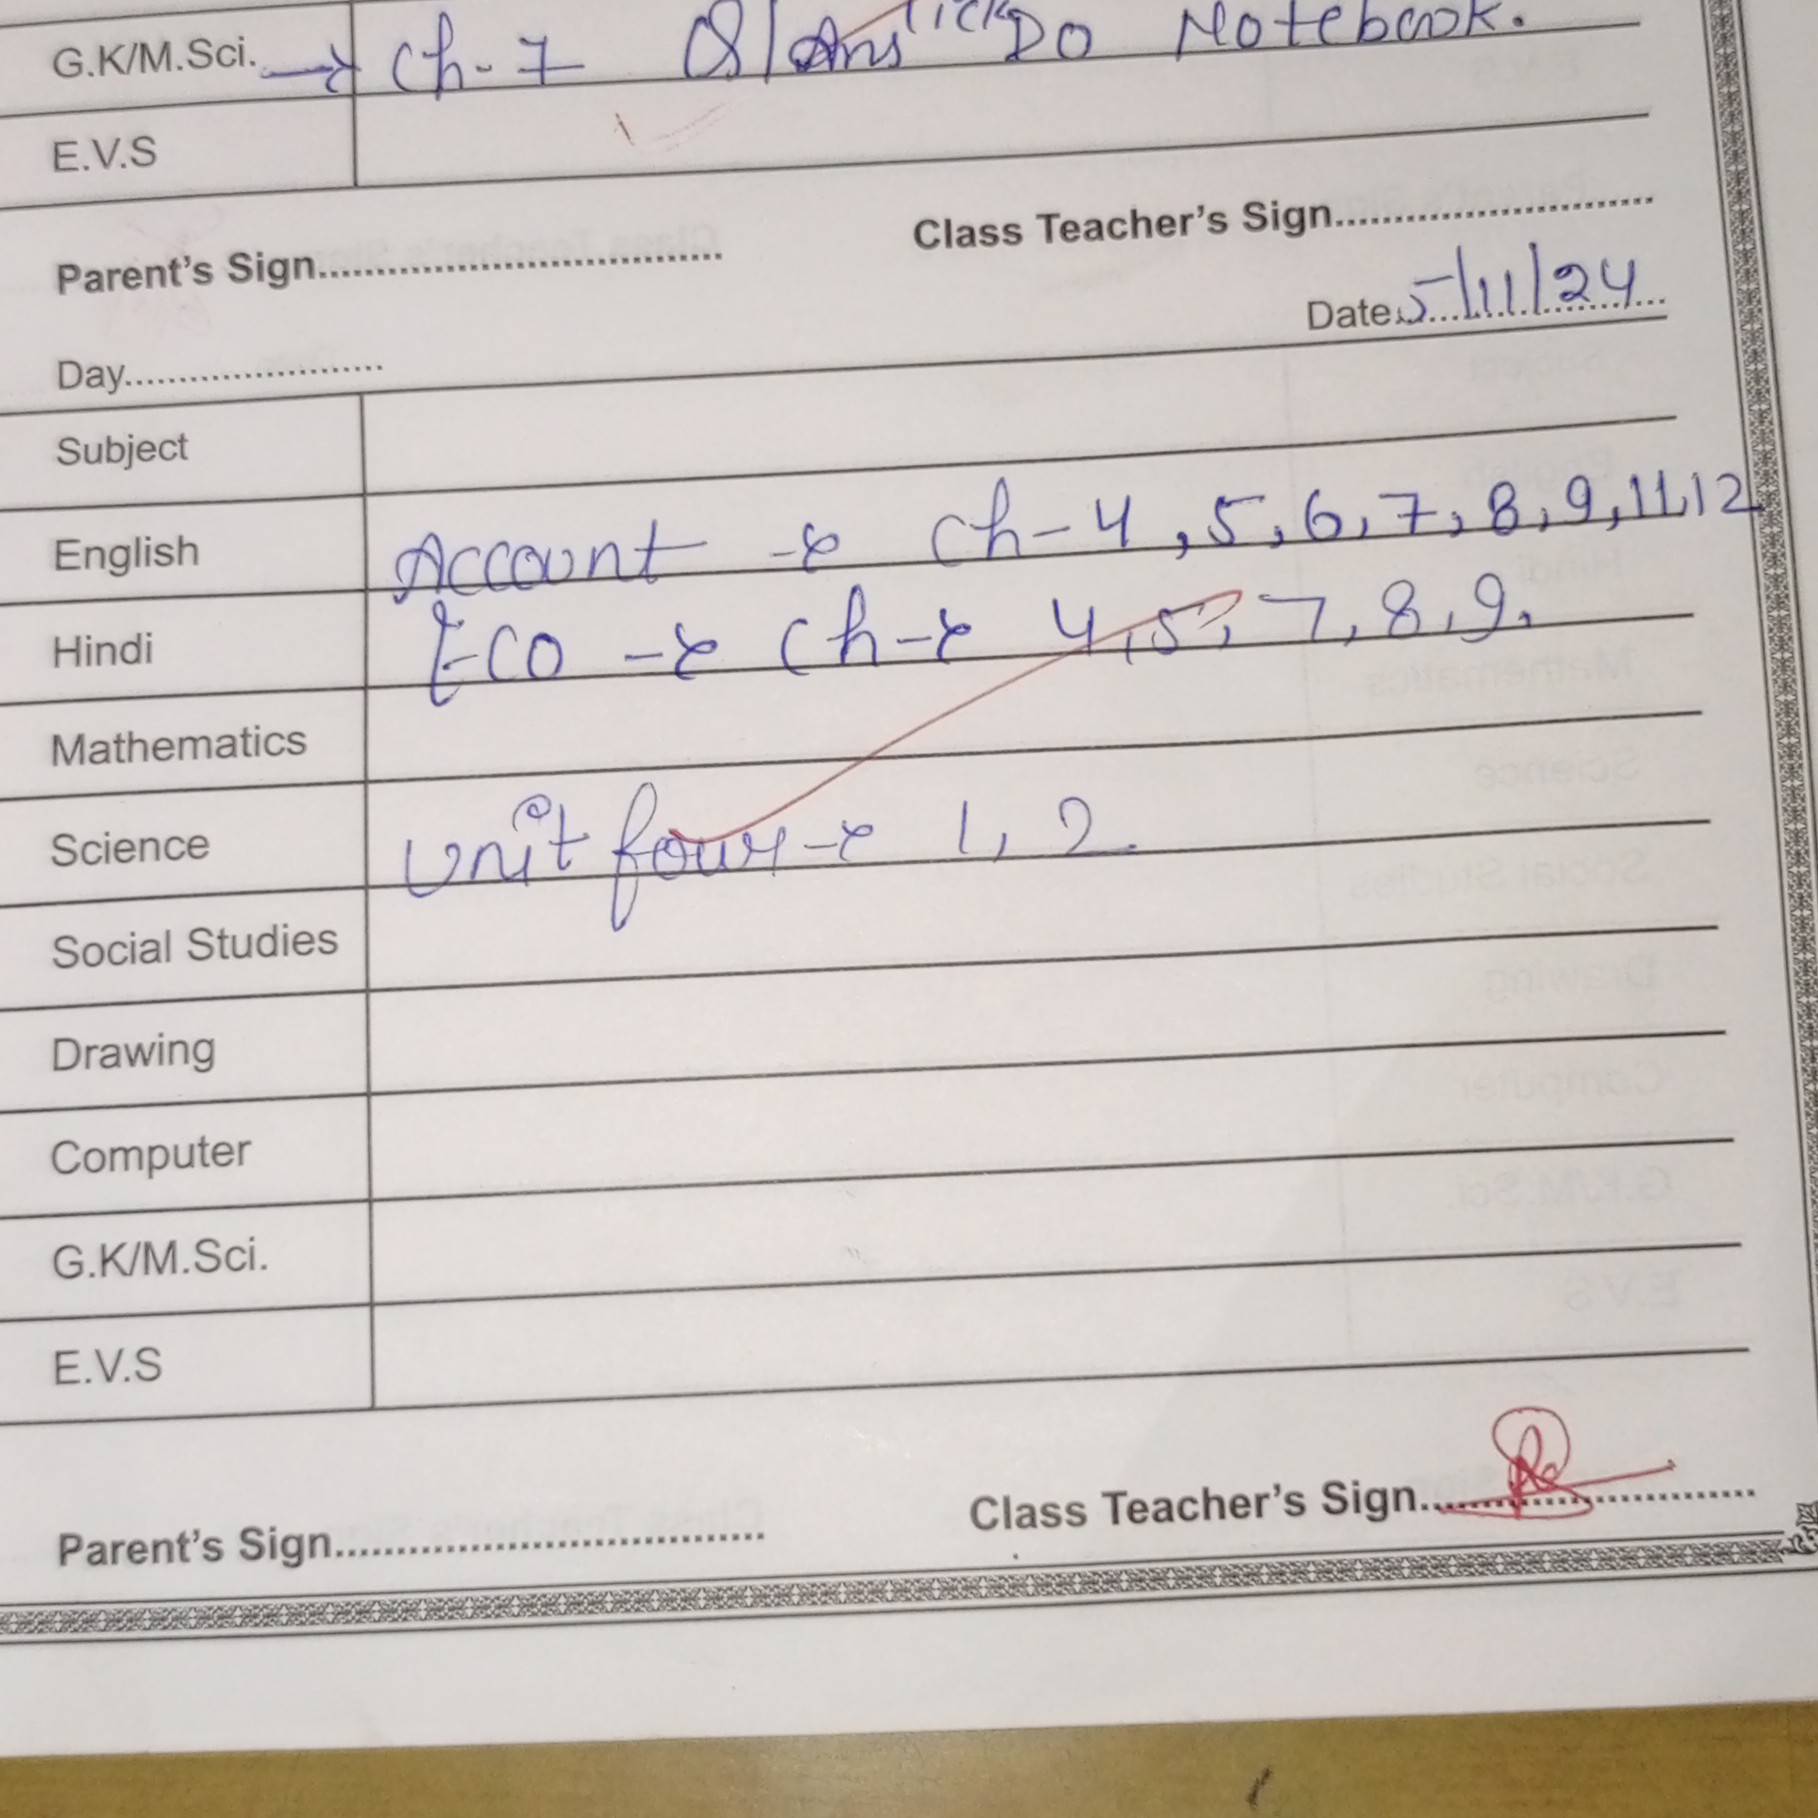 G.K/M.Sci. → Ch-7 Q/Ans Tick Do Notebook.
E.V.S
Parent's Sign........................ Class Teacher's Sign........................
Day........................ Date 5/11/24
Subject
English Account → Ch-4,5,6,7,8,9,11,12
Hindi ECO → Ch → 4,5,7,8,9.
Mathematics
Science Unit four → 1, 2.
Social Studies
Drawing
Computer
G.K/M.Sci.
E.V.S
Parent's Sign........................ Class Teacher's Sign........................